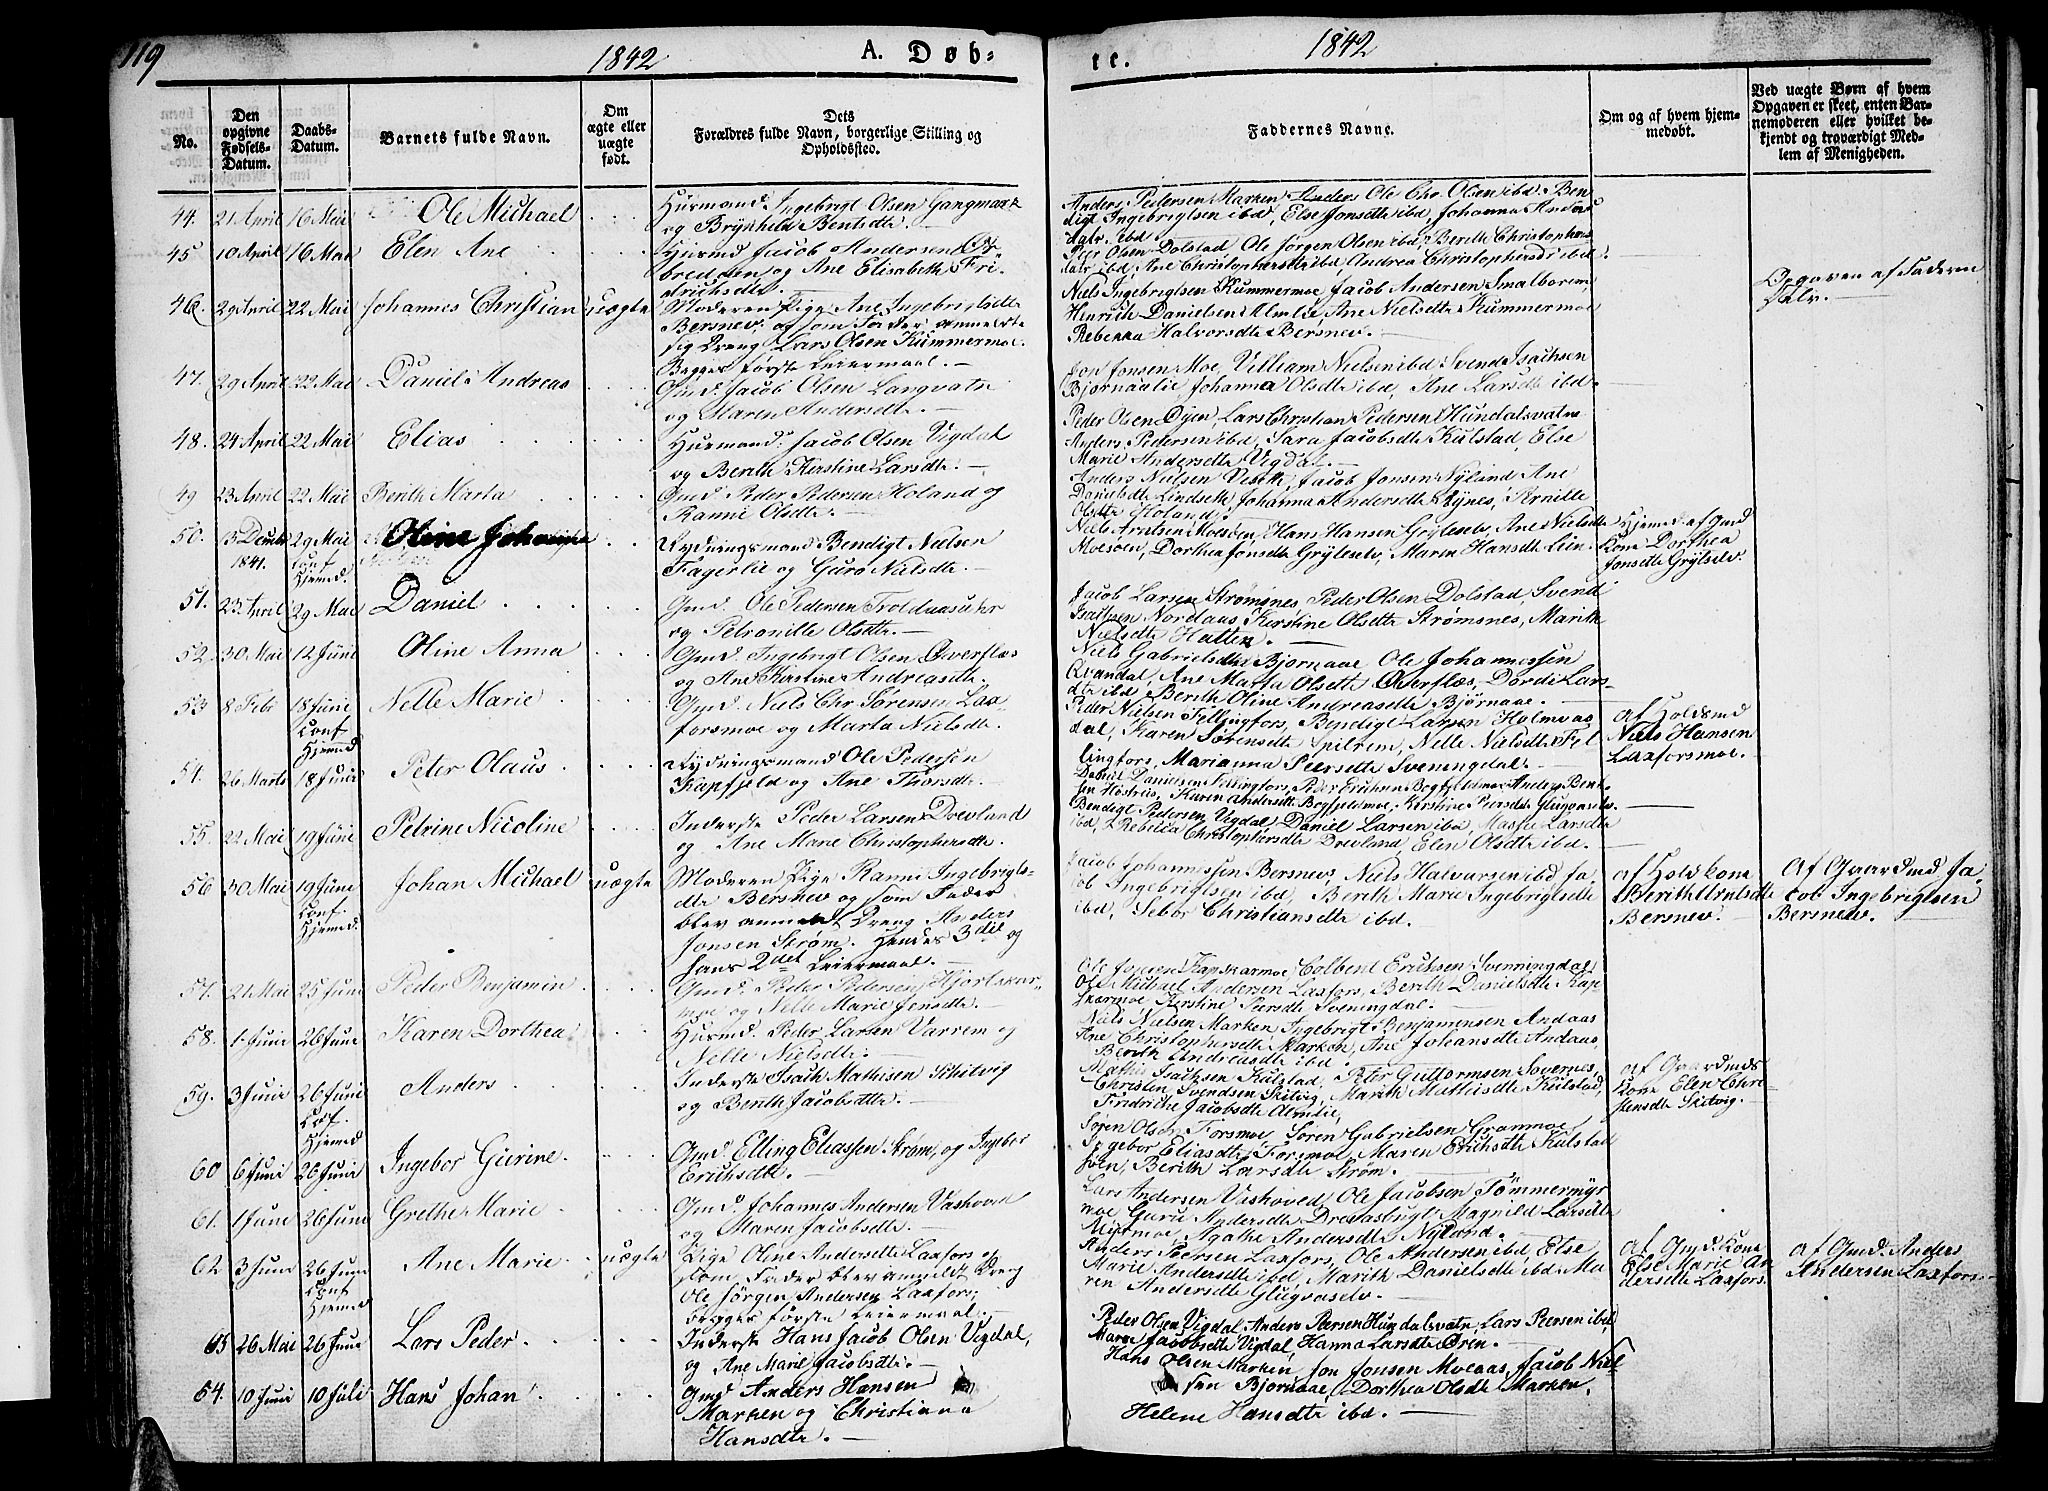 119
1842
A. Døb-
te.
1842
No.
Den opgivne Fødsels-Datum.
Daabs-Datum.
Barnets fulde Navn.
Om ægte eller uægte født.
Dets
Forældres fulde Navn, borgerlige Stilling og
Opholdssted.
Faddernes Navne.
Om og af hvem hjem-
medøbt.
Ved uægte Børn af hvem
Opgaven er skeet, enten Bar-
nemoderen eller hvilket be-
kjendt og troværdigt Med-
lem af Menigheden.
44. 21 April 16 Mai Ole Michael
Huusmand Ingebrigt Olsen Gangmark
og Brynhild Bentsdtr
Anders Pedersen Marken, Ole Chr. Olsen ibd. Ben
digt Ingebrigtsen ibd, Else Jonsdtr ibd, Johanna Anders
datr. ibd
45 10 April 16 Mai Elen Ane
Huusmd Jacob Andersen
bredden og Ane Elisabeth Fri-
drichsdtr.
Peer Olsen Dolstad, Ole Jørgen Olsen ibd, Berith Christophers
datr ibd, Ane Christophersdtr ibd, Andrea Christophersdtr ibd.
46. 29 April 22 Mai Johannes Christian uægte
Moderen Pige Ane Ingebrigtsdtr
Bersnev, og som Fader anmeldte
sig Dreng Lars Olsen Kummermoe.
Begges første Leiermaal.
Niels Ingebrigtsen Kummermoe, Jacob Andersen Smalborem
Henrich Danielsen Almlie, Ane Nielsdtr Kummermoe
Rebekka Halvorsdtr Bersnev.
Opgaven af Faderen
Selv.
47. 29 April 22 Mai Daniel Andreas
Gmd. Jacob Olsen Langvatn
og Maren Andersdtr.
Jon Jonsen Moe, Villiam Nielsen ibd, Svend Isachsen
Bjornaalie, Johanna Olsdtr ibd, Ane Larsdtr ibd.
48. 24 April 22 Mai Elias
Huusmand Jacob Olsen Vigdal
og Berith Kirstine Larsdtr.
Peder Olsen Øyen, Lars Christian Pedersen Hundalsvatn
Anders Pedersen ibd, Sara Jacobsdtr Kulstad, Else
Marie Andersdtr Vigdal.
49 23 April 22 Mai Berith Marta
Gmd. Peder Pedersen Holand og
Ranni Olsdtr.
Anders Nielsen Veseth, Jacob Jonsen Nyland, Ane
Danielsdtr Lindseth, Johanna Andersdtr Rynes, Pernille
Olsdtr Holand.
50. 13 Decbr 1841. 29 Mai Conf. Hjemed. Oline Johanna
Rydningsmand Bendigt Nielsen
Fagerlie og Guro Nielsdtr.
Niels Arntsen Mosøen, Hans Hansen Grytselv, Ane Nielsdtr
Mosøen, Dorthea Jonsdtr Grytselv, Maren Hansdtr Lien
Hjemed. af Gmd
Kone Dorthea
Jonsdtr Grytselv.
51. 23 April 29 Mai Daniel
Gmd. Ole Pedersen Troldaasuhr
og Petronille Olsdtr.
Jacob Larsen Strømsnes, Peder Olsen Dolstad, Svend
Isachsen Nordaas, Kirstine Olsdtr Strømsnes, Marith
Nielsdtr Hatten.
52. 30 Mai 12 Juni Oline Anna
Gmd. Ingebrigt Olsen Øverflæs
og Ane Kirstine Andreasdtr.
Niels Gabrielsen Bjornaae, Ole Johannessen
Qvandal, Ane Marta Olsdtr Øverflæs, Dordi Lars-
dtr ibd, Berith Oline Andreasdtr Bjørnaae.
53 8 Feb 18 Juni Conf. Hjemed Nelle Marie
Gmd. Niels Chr. Sørensen Lax-
forsmoe og Marta Nielsdtr.
Peder Nielsen Fillingfors, Bendigt Larsen Holmvas
dal, Karen Sørensdtr Spilrem, Nelle Nielsdtr Fil
lingfors, Marianna Peersdtr Svenningdal.
Af Holdsmd
Niels Hansen
Laxforsmoe.
54. 26 Marts 18 Juni Peter Olaus
Rydningsmand Ole Pedersen
Kapfjeld og Ane Thorsdtr.
Daniel Danielsen Fillingfors, Peder Erichsen Bogfjeldmoe, Anders Bent-
sen Hestriis, Karen Andersdtr Bogfjeldmoe, Kirstine Peersdtr Glugvaselv.
55. 22 Mai 19 Juni Petrine Nicoline
Inderste Peder Larsen Drevland
og Ane Marie Christophersdtr.
Bendigt Pedersen Vigdal, Daniel Larsen ibd, Massi Larsdtr
ibd, Rebecca Christophersdtr Drevland, Elen Olsdtr ibd.
56 30 Mai 19 Juni Conf. Hjemed. Johan Michael uægte
Moderen Pige Ranni Ingebrigts-
dtr Bersnev og som Fader
blev anmeldt Dreng Anders
Jonsen Strøm. Hendes 3die og
hans 2det Leiermaal.
Jacob Johannessen Bersnev, Niels Halvorsen ibd, Ja
cob Ingebrigtsen ibd, Berith Marie Ingebrigtsdtr
ibd, Sebor Christiansdtr ibd.
af Holdskone
Berith Arntsdtr
Bersnev.
Af Gaardmd. Ja-
cob Ingebrigtsen
Bersnev.
57. 21 Mai 25 Juni Peder Benjamin
Gmd. Peder Pedersen Hjortskar-
moe og Nelle Marie Jensdtr.
Ole Jonsen Kapskarmoe, Colbent Erichsen Svenningdal,
Ole Michael Andersen Laxfors, Berith Danielsdtr Kap-
skarmoe, Kirstine Peersdtr Svenningdal.
58. 1 Juni 26 Juni Karen Dorthea
Huusmd. Peder Larsen Varrem og
Nelle Nielsdtr.
Niels Nielsen Marken, Ingebrigt Benjaminsen Andaas
Ane Christophersdtr Marken, Ane Johansdtr Andaas,
Berith Andreasdtr ibd.
59. 3 Juni 26 Juni Conf. Hjemed Anders
Inderste Isach Mathisen Skitvig
og Berith Jacobsdtr.
Mathis Isachsen Kulstad, Peter Guttormsen Sovernes,
Christen Svendsen Skitvig, Marith Mathisdtr Kulstad,
Fredrikke Jacobsdtr Almlie,
af Gaardmds
Kone Elen Chri-
stensdtr Skitvig.
60 6 Juni 26 Juni Ingebor Gurine.
Gmd. Elling Eliassen Strøm, og Ingebor
Erichsdtr.
Søren Olsen Forsmoe, Søren Gabrielsen Granmoe
Ingebor Eliasdtr Forsmoe, Maren Erichsdtr Kulstad
søen, Berith Larsdtr Strøm.
61. 1 Juni 26 Juni Grethe Marie
Gmd. Johannes Andersen Vashoved
og Maren Jacobsdtr.
Lars Andersen Vashoved, Ole Jacobsen Tömmermyr
moe, Guru Andersdtr Drevasbugt, Magnild Larsdtr
Myrmoe, Agathe Andersdtr Nyland.
62 3 Juni 26 Juni Conf. Hjemed Ane Marie uægte
Pige Oline Andersdtr Laxfors og
som Fader blev anmeldt Dreng
Ole Jørgen Andersen Laxfors,
begges første Leiermaal.
Anders Peersen Laxfors, Ole Andersen ibd, Else
Marie Andersdtr ibd, Marith Danielsdtr ibd, Ma
ren Andersdtr Glugvaselv.
af Gmd. Kone
Else Marie An
dersdtr Laxfors.
af Gmd. Anders
Andersen Laxfors.
63 26 Mai 26 Juni Lars Peder.
Inderste Hans Jacob Olsen Vigdal,
og Ane Marie Jacobsdtr.
Peder Olsen Vigdal, Anders Peersen Hundalsvatn, Lars Peersen ibd,
Maren Jacobsdtr Vigdal, Hanna Larsdtr Øren.
64. 10 Juni 10 Juli Hans Johan
Gmd. Anders Hansen
Marken og Christiana
Hansdtr.
Hans Olsen Marken, Jon Jonsen Moeaas, Jacob Niel
sen Bjornaae, Dorthea Olsdtr Marken,
Helene Hansdtr ibd.